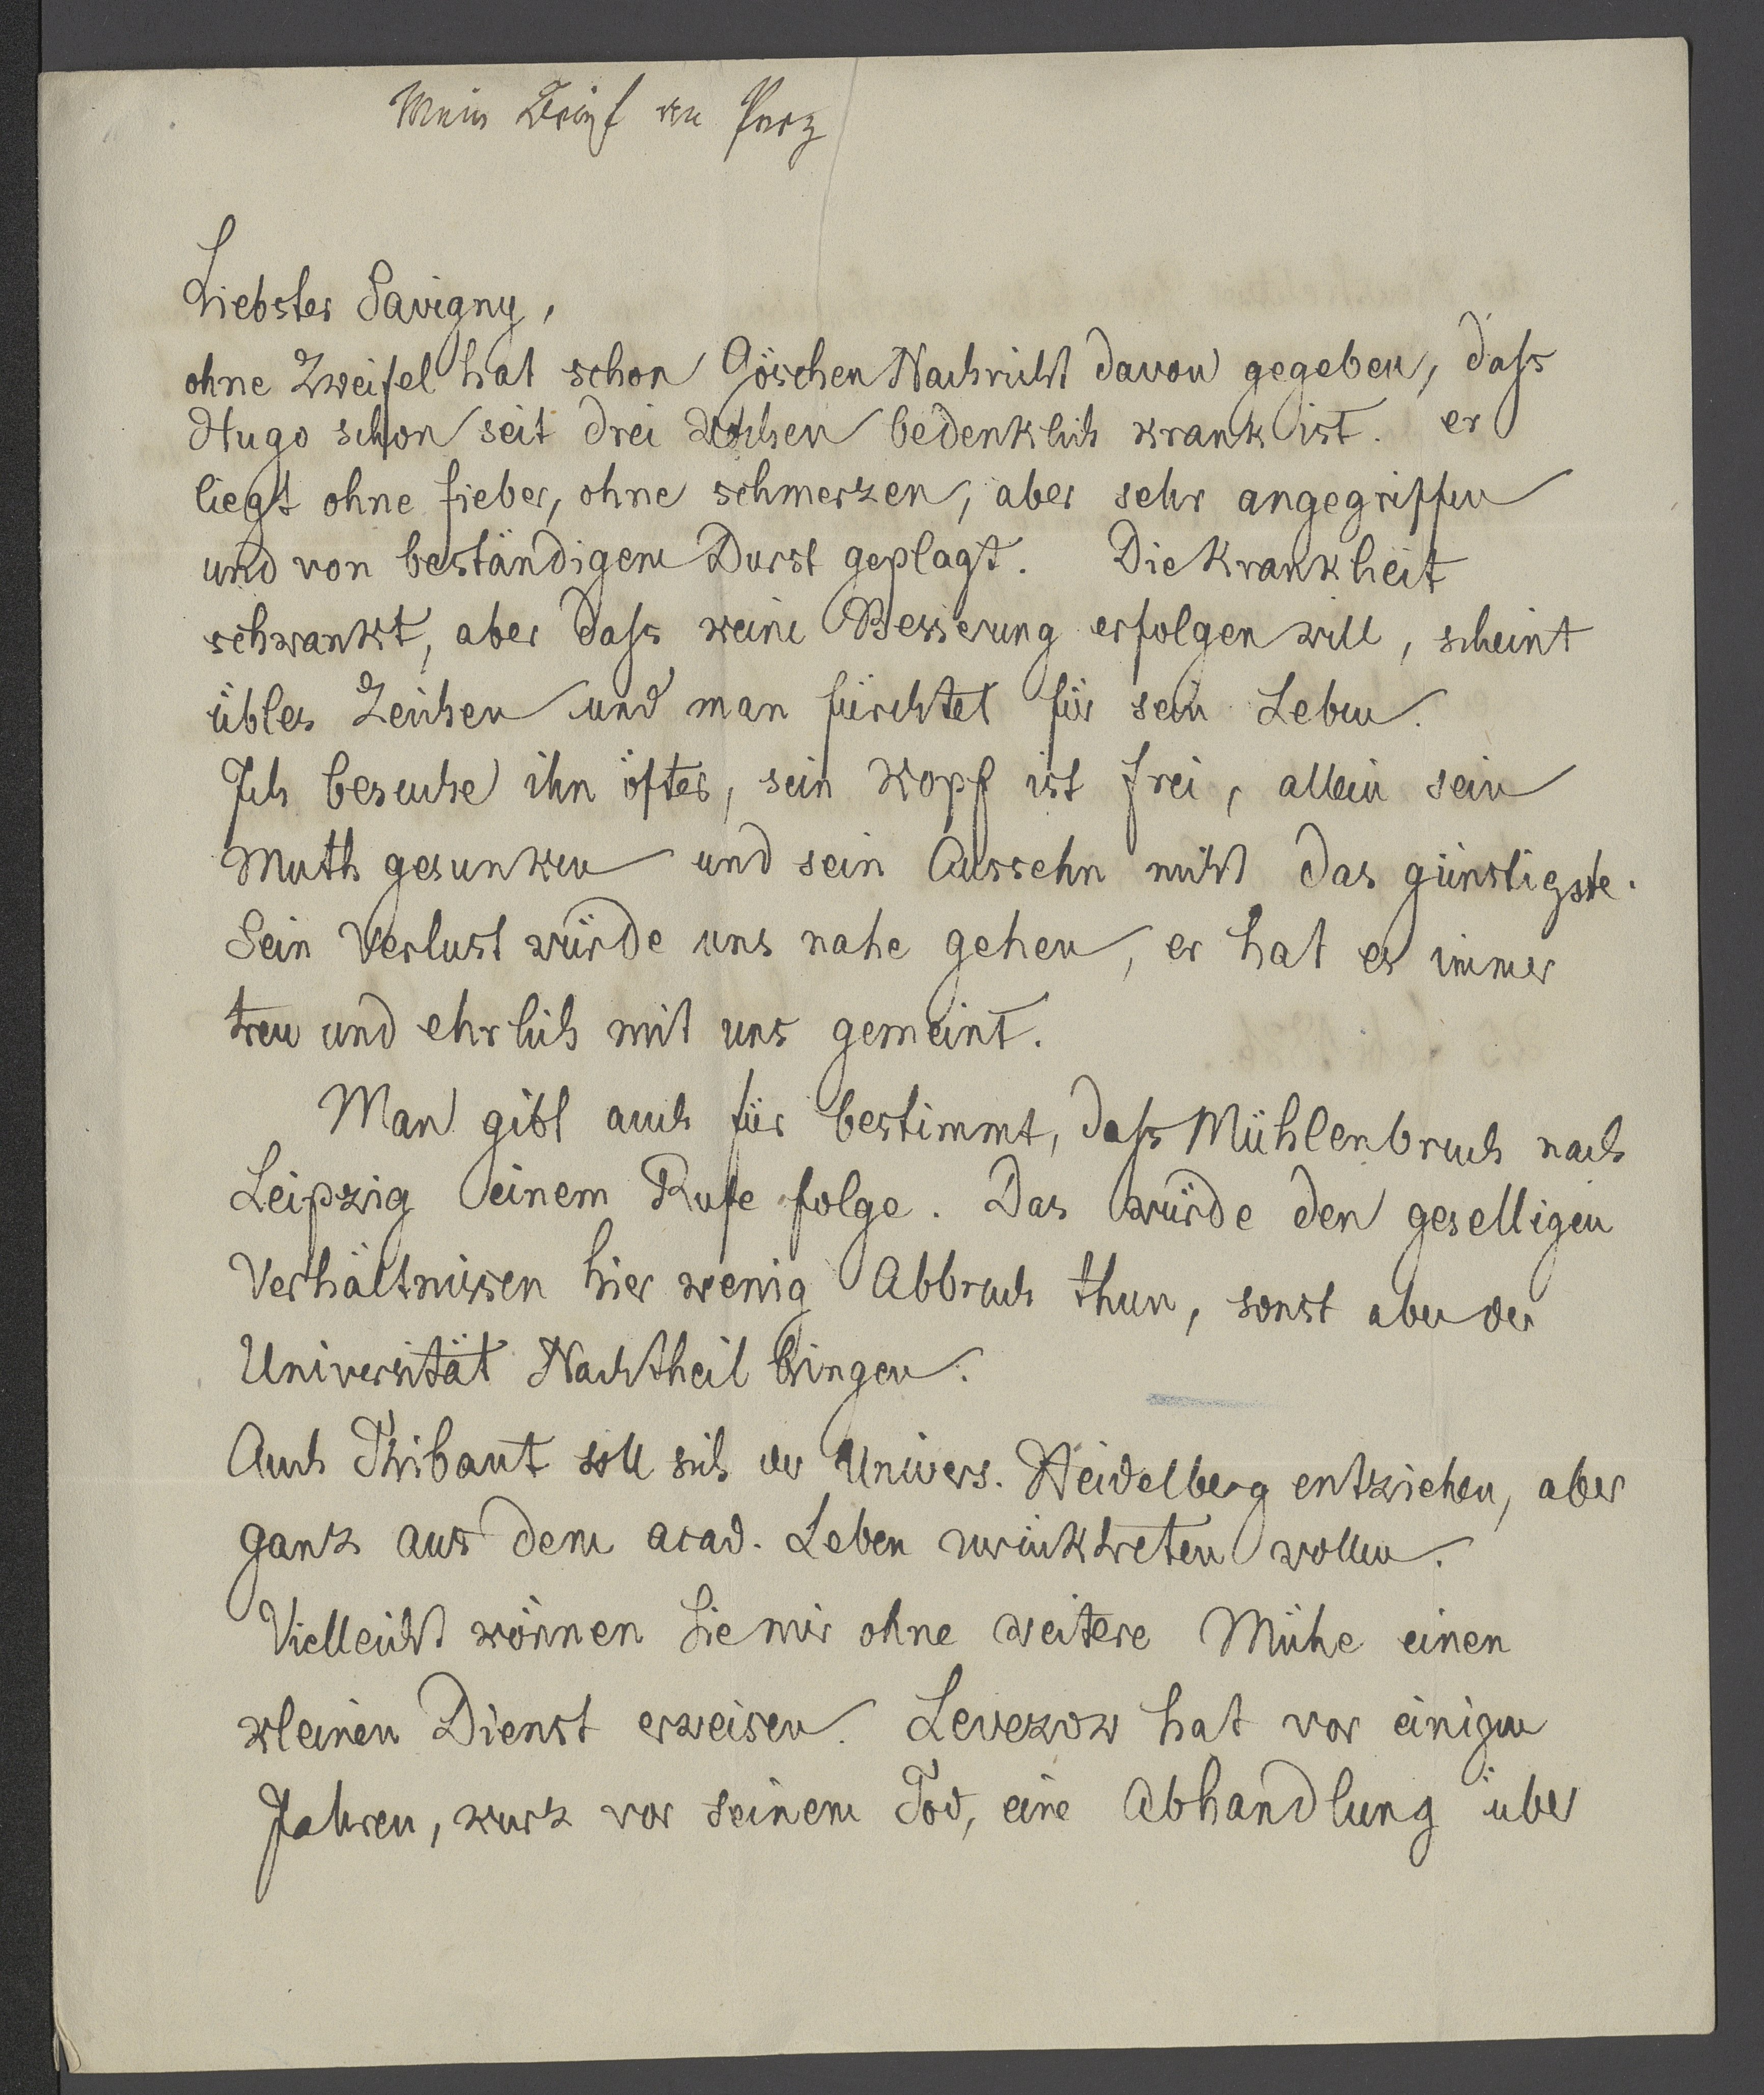 Mein Brief an Perz
Liebster Savigny,
ohne Zweifel hat schon Göschen Nachricht davon gegeben, daſs
Hugo schon seit drei Wochen bedenklich krank ist. er
liegt ohne fieber, ohne schmerzen, aber sehr angegriffen
und von beständigem Durst geplagt. Die Krankheit
schwankt, aber daſs keine Besserung erfolgen will, scheint
übles Zeichen und man fürchtet für sein Leben.
Ich besuche ihn öfter, sein Kopf ist frei, allein sein
Muth gesunken und sein Aussehn nicht das günstigste.
Sein Verlust würde uns nahe gehen, er hat es immer
treu und ehrlich mit uns gemeint.
Man gibt auch für bestimmt, daſs Mühlenbruch nach
Leipzig einem Rufe folge. Das würde den geselligen
Verhältnissen hier wenig Abbruch thun, sonst aber der
Universität Nachtheil bringen.
Auch Thibaut soll sich der Univers. Heidelberg entziehen, aber
ganz aus dem acad. Leben zurücktreten wollen.
Vielleicht können Sie mir ohne weitere Mühe einen
kleinen Dienst erweisen. Levezow hat vor einigen
Jahren, kurz vor seinem Tod, eine Abhandlung über